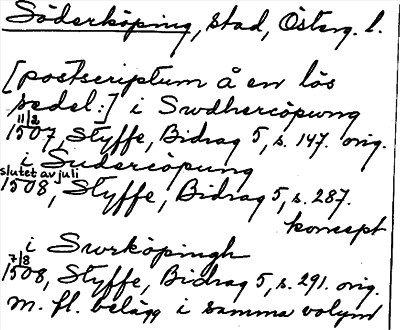 Söderköping, stad, Österg. l.
[postscriptum å en lös
sedel:] i Swdhercöpwng
11/2
1507, Styffe, Bidrag 5, s. 147. orig.
i Sudercöpung
slutet av juli
1508, Styffe, Bidrag 5, s. 287.
koncept
i Swrköpingh
7/8
1508, Styffe, Bidrag 5, s. 291. orig.
m. fl. belägg i samma volym